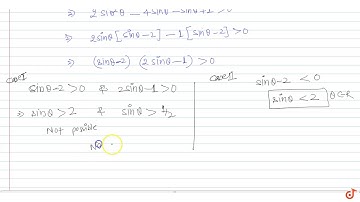 ⇒ 2sin²θ - 4sinθ - sinθ+1 > 0
⇒ 2sinθ[sinθ-2] -1[sinθ-2]>0
⇒ (sinθ-2) (2sinθ-1) >0
Case I
sinθ-2>0 & 2sinθ-1>0
⇒ sinθ>2 & sinθ> 1/2
Not posible
No
Case II
sinθ-2 < 0
sinθ<2 θ∈R